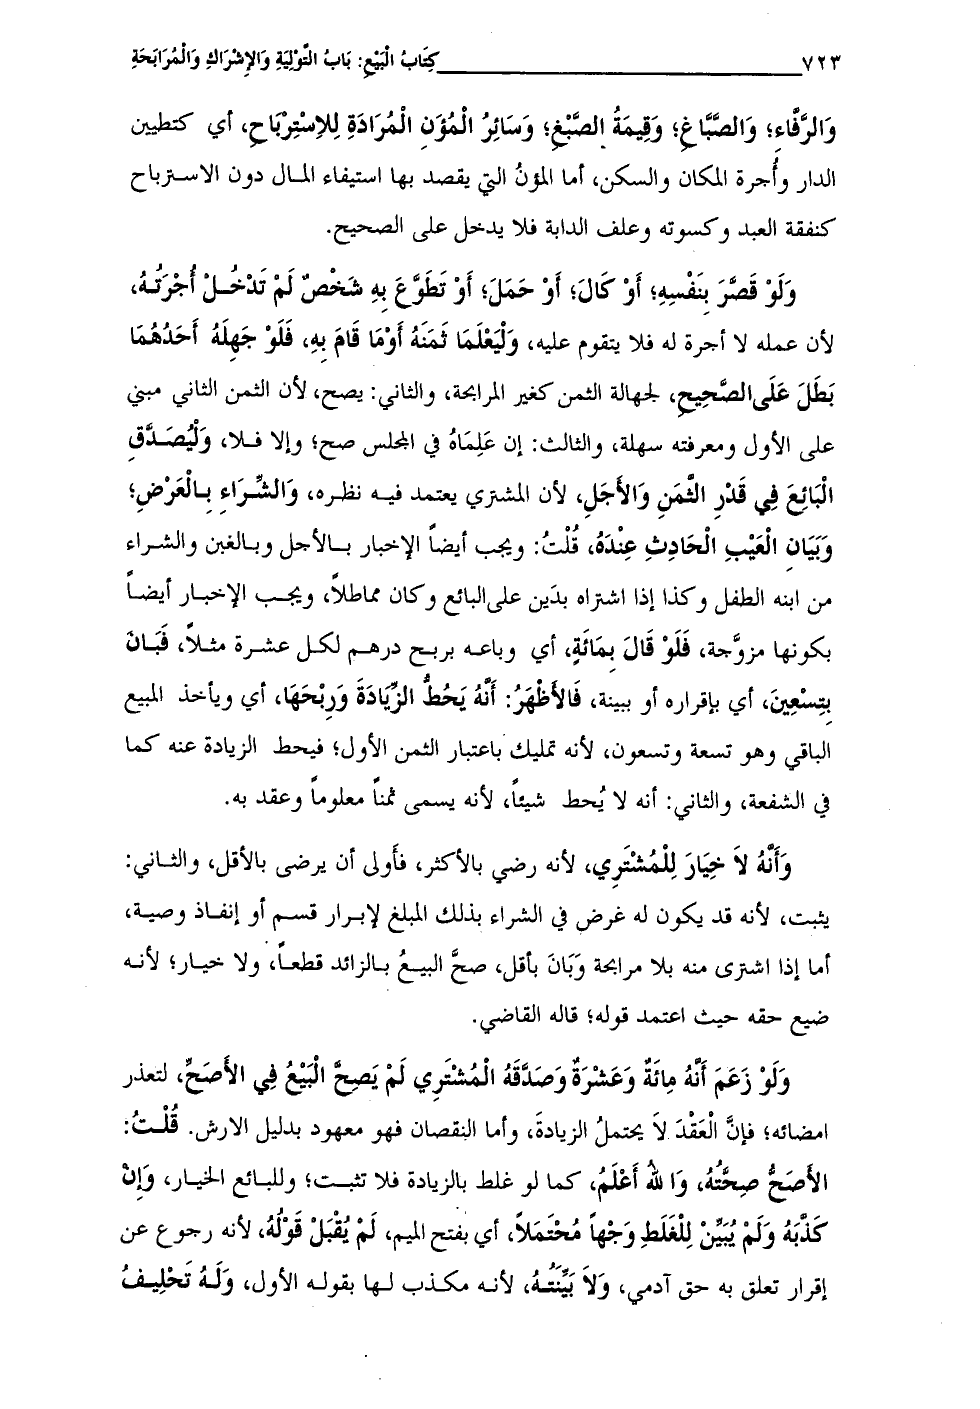 ٧٢٣ كِتَابُ الْبَيْعِ: بَابُ التَّوْلِيَةِ وَالإِشْرَاكِ وَالْمُرَابَحَةِ
وَالرَّفَّاءِ؛ وَالصَّبَّاغِ؛ وَقِيمَةُ الصَّبْغِ؛ وَسَائِرُ الْمُؤَنِ الْمُرَادَةِ لِلاِسْتِرْبَاحِ، أي كتطيين
الدار وأُجرة المكان والسكن، أما المؤنُ التي يقصد بها استيفاء المال دون الاسترباح
كنفقة العبد وكسوته وعلف الدابة فلا يدخل على الصحيح.
وَلَوْ قَصَّرَ بِنَفْسِهِ؛ أَوْ كَالَ؛ أَوْ حَمَلَ؛ أَوْ تَطَوَّعَ بِهِ شَخْصٌ لَمْ تَدْخُلْ أُجْرَتُهُ،
لأن عمله لا أجرة له فلا يتقوم عليه، وَلْيَعْلَمَا ثَمَنَهُ أَوْمَا قَامَ بِهِ، فَلَوْ جَهِلَهُ أَحَدُهُمَا
بَطَلَ عَلَى الصَّحِيحِ، لجهالة الثمن كغير المرابحة، والثاني: يصح، لأن الثمن الثاني مبني
على الأول ومعرفته سهلة، والثالث: إن عَلِمَاهُ في المجلس صح؛ وإلا فلا، وَلْيُصَدَّقِ
الْبَائِعَ فِي قَدْرِ الثَّمَنِ وَالأَجَلِ، لأن المشتري يعتمد فيه نظره، وَالشِّرَاءِ بِالْعَرْضِ؛
وَبَيَانِ الْعَيْبِ الْحَادِثِ عِنْدَهُ، قُلْتُ: ويجب أيضاً الإخبار بالأجل وبالغبن والشراء
من ابنه الطفل وكذا إذا اشتراه بدَين على البائع وكان مماطلاً، ويجب الإخبار أيضاً
بكونها مزوَّجة، فَلَوْ قَالَ بِمَائَةٍ، أي وباعه بربح درهم لكل عشرة مثلاً، فَبَانَ
بِتِسْعِينَ، أي بإقراره أو ببينة، فَالأَظْهَرُ: أَنَّهُ يَحُطُّ الزِّيَادَةَ وَرِبْحَهَا، أي ويأخذ المبيع
الباقي وهو تسعة وتسعون، لأنه تمليك باعتبار الثمن الأول؛ فيحط الزيادة عنه كما
في الشفعة، والثاني: أنه لا يُحط شيئاً، لأنه يسمى ثمناً معلوماً وعقد به.
وَأَنَّهُ لاَ خِيَارَ لِلْمُشْتَرِي، لأنه رضي بالأكثر، فأولى أن يرضى بالأقل، والثاني:
يثبت، لأنه قد يكون له غرض في الشراء بذلك المبلغ لإبرار قسم أو إنفاذ وصية،
أما إذا اشترى منه بلا مرابحة وَبَانَ بأقل، صحَّ البيعُ بالزائد قطعاً، ولا خيار؛ لأنه
ضيع حقه حيث اعتمد قوله؛ قاله القاضي.
وَلَوْ زَعَمَ أَنَّهُ مِائَةٌ وَعَشْرَةٌ وَصَدَّقَهُ الْمُشْتَرِي لَمْ يَصِحَّ الْبَيْعُ فِي الأَصَحِّ، لتعذر
امضائه؛ فإنَّ الْعَقْدَ لاَ يحتملُ الزيادةَ، وأما النقصان فهو معهود بدليل الارش. قُلْتُ:
الأَصَحُّ صِحَّتُهُ، وَا للهُ أَعْلَمُ، كما لو غلط بالزيادة فلا تثبت؛ وللبائع الخيار، وَإِنْ
كَذَّبَهُ وَلَمْ يُبَيِّنْ لِلْغَلَطِ وَجْهاً مُحْتَمَلاً، أي بفتح الميم، لَمْ يُقْبَلْ قَوْلُهُ، لأنه رجوع عن
إقرار تعلق به حق آدمي، وَلاَ بَيِّنَتُهُ، لأنه مكذب لها بقوله الأول، وَلَهُ تَحْلِيفُ